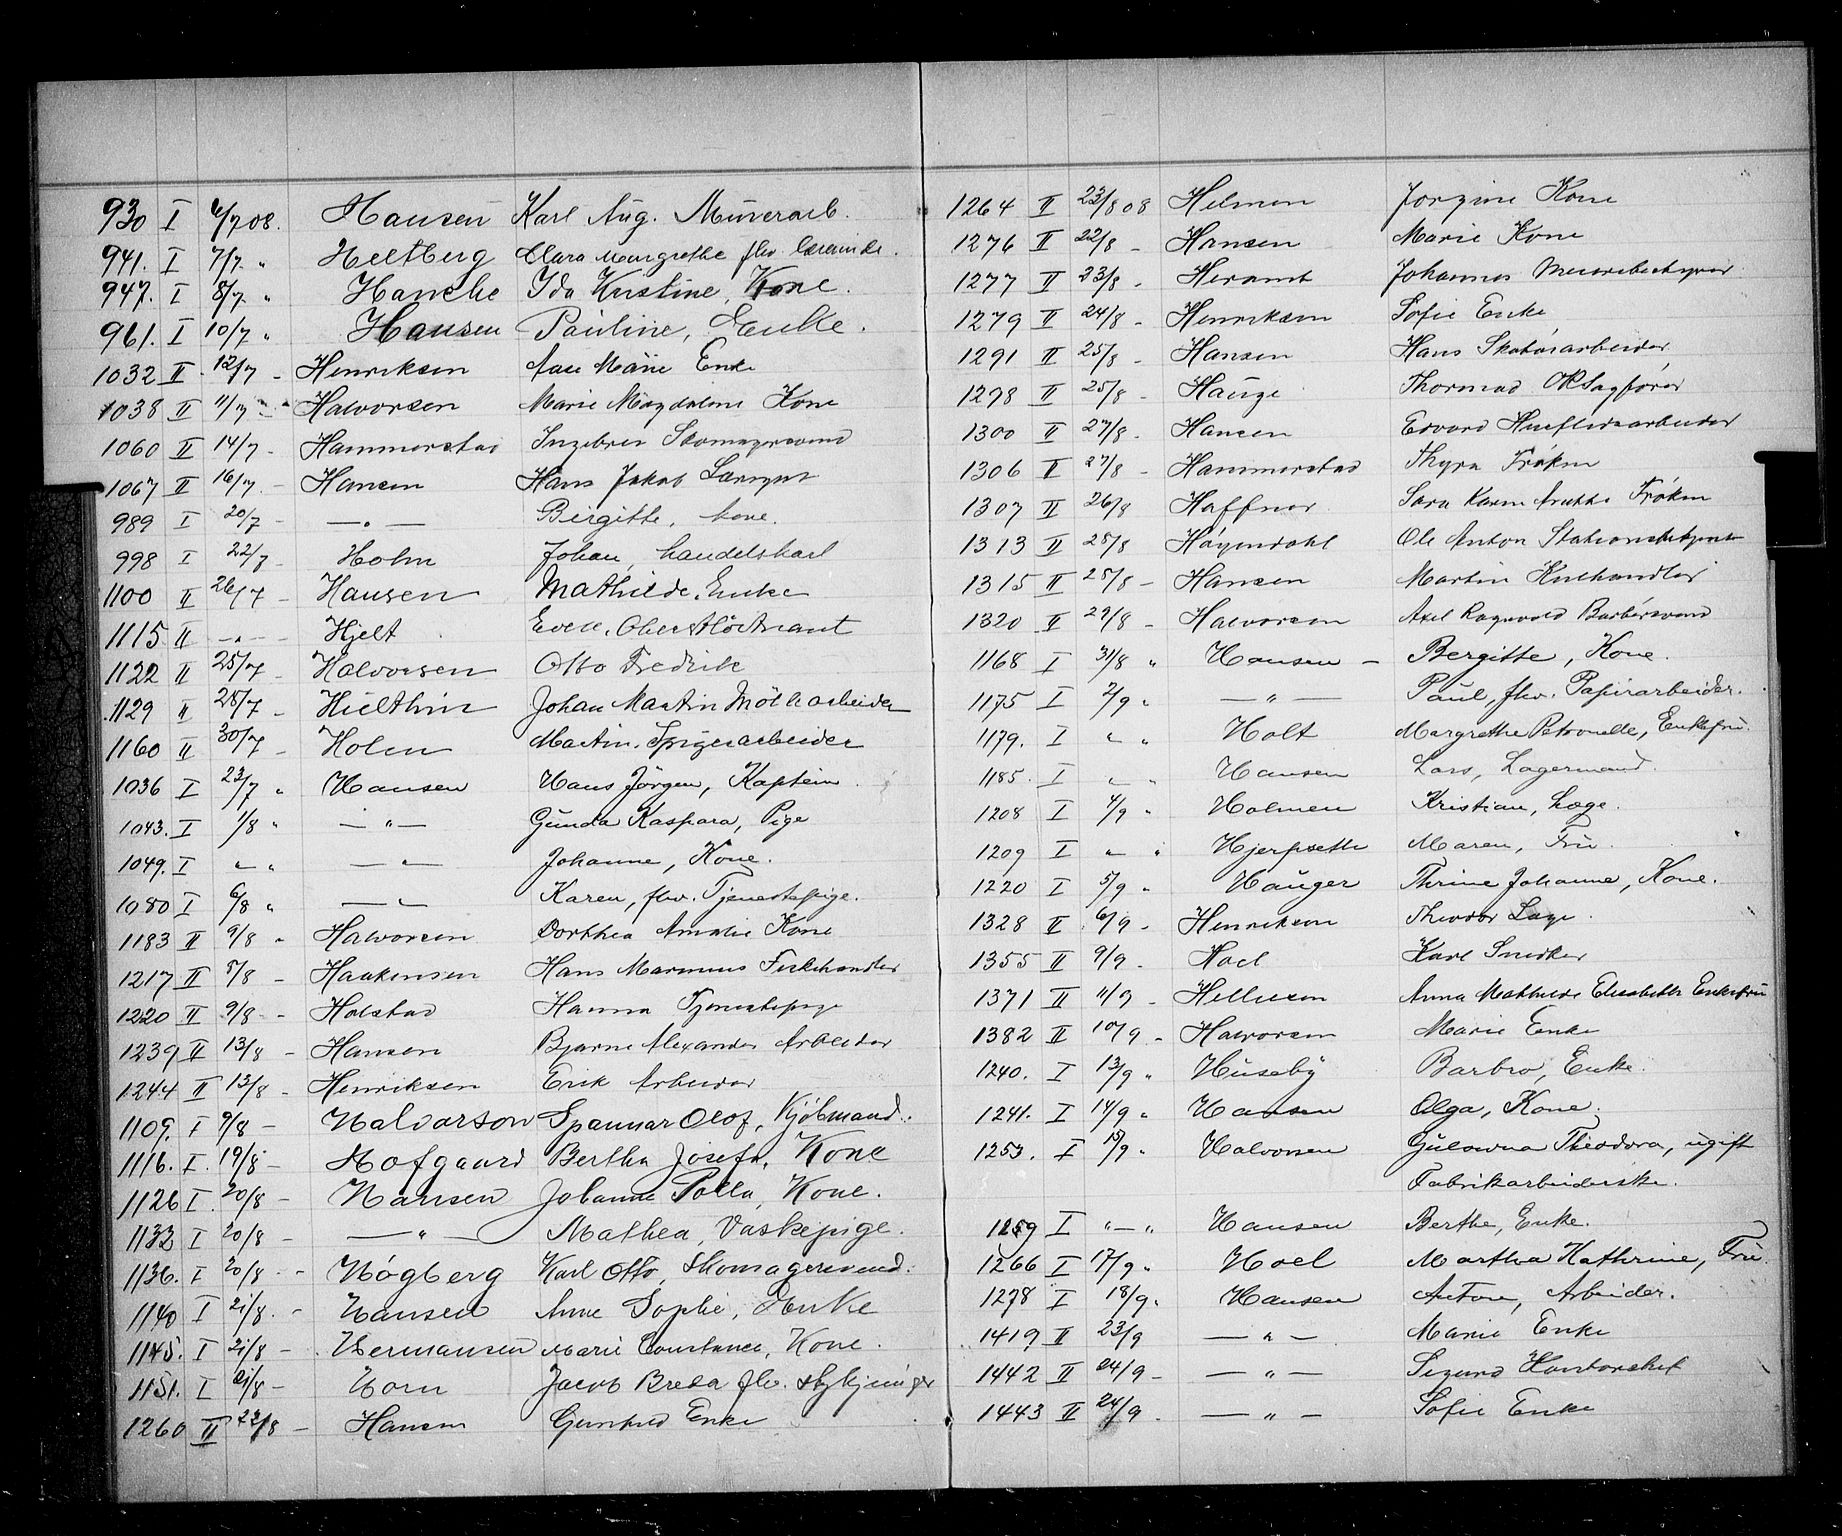 930 I 6/7 08. Hansen Karl Aug. Murerarb.
941. I 7/7 " Heltberg Clara Margrethe flv. lærerinde.
947. I 8/7 " Hanche Ida Kristine, Kone.
961. I 10/7 " Hansen Pauline, Enke.
1032 II 12/7 - Henriksen Aase Marie Enke
1038 II 11/7 - Halvorsen Marie Magdalene Kone
1060 II 14/7 - Hammerstad Ingebret Skomagersvend
1067 II 16/7 - Hansen Hans Jakob
989 I 20/7 - —"— Birgitte, kone.
998 I 22/7 - Holm Johan, handelskarl
1100 II 26/7 - Hansen Mathilde, Enke
1115 II -"- Hjelt Even, Oberstlöitnant
1122 II 25/7 - Halvorsen Otto Fredrik
1129 II 28/7 - Hielthin Johan Martin Möllearbeider
1160 II 30/7 - Holm Martin, Spigerarbeider
1036 I 23/7 " Hansen Hans Jörgen, Kaptein
1043. I 1/8 " —"— Gunda Kaspara, Pige
1049. I " " —"— Johanne, Kone.
1080 I 6/8 " —"— Karen, flv. Tjenestepige.
1183 II 9/8 " Halvorsen Dorthea Amalie Kone
1217 II 5/8 - Haakensen Hans Marinius Fiskehandler
1220 II 9/8 - Holstad Hanna Tjenestepige
1239 II 13/8 - Hansen Bjarne Alexander Arbeider
1244 II 13/8 - Henriksen Erik Arbeider
1109. I 9/8 - Halvarson Spannar Olof, Kjöbmand.
1116. I. 19/8 - Hofgaard Bertha Josefa, Kone
1126 I. 20/8 - Hansen Johanne Polla, Kone.
1132 I 20/8 - —"— Mathea, Vaskepige.
1136. I 20/8 - Högberg Karl Otto, Skomagersvend.
1140 I 21/8. - Hansen Anne Sophie, Enke
1145. I 21/8 - Hermansen Marie Constance, Kone.
1151. I 21/8 - Horn Jacob Breda flv.
1260 II 23/8 - Hansen Gunhild Enke
1264 II 23/8 08 Helmen Jorgine Kone
1276 II 22/8 - Hansen Marie Kone
1277 II 23/8 - Johannes
1279 II 24/8 - Henriksen Sofie Enke
1291 II 25/8 - Hansen Hans Skotöiarbeider
1298 II 25/8 - Hauge Thormod ORSagfører
1300 II 27/8 - Hansen Edvard Husflidsarbeider
1306 II 27/8 - Hammerstad Thyra Frøken
1307 II 26/8 Haffner Sara Karen Frøken
1313 II 28/8 Høyendahl Ole Anton
1315 II 28/8 - Hansen Martin Kulhandler
1320 II 29/8 - Halvorsen Axel Ragnvald Barbérsvend
1168 I 31/8 " Hansen - Bergitte, Kone.
1175 I 2/9 " —"— Paul, flv. Papirarbeider.
1179. I " " Holt Margrethe Petronelle, Enkefru.
1185. I " " Hansen Lars, Lagermand.
1208 I 4/9 " Holmen Kristian, Læge.
1209 I " " Hjerpseth Maren, Fru.
1220 I 5/9 " Hauger Thrine Johanne, Kone.
1328 II 6/9 - Henriksen Theodor Læge.
1355 II 9/9 - Hoel Karl Snedker
1371 II 11/9 - Helliesen Anna Mathilde Elisabeth Enkefru
1382 II 10/9 - Halvorsen Marie Enke
1240. I 13/9 " Huseby Barbro, Enke.
1241. I 14/9 " Hansen Olga, Kone.
1253. I 15/9 " Halvorsen Gulowna Theodora, ugift
Fabrikarbeiderske.
1259 I "—" Hansen Berthe, Enke.
1266 I 17/9 " Hoel Martha Kathrine, Fru.
1278 I 18/9 " Hansen Anton, Arbeider.
1419 II 23/9 —"— Marie Enke
1442 II 24/9 - —"— Sigurd Kontorchef
1443 II 24/9 - —"— Sofie Enke